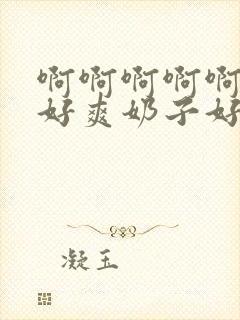 啊啊啊啊啊
好爽奶子好
凝玉